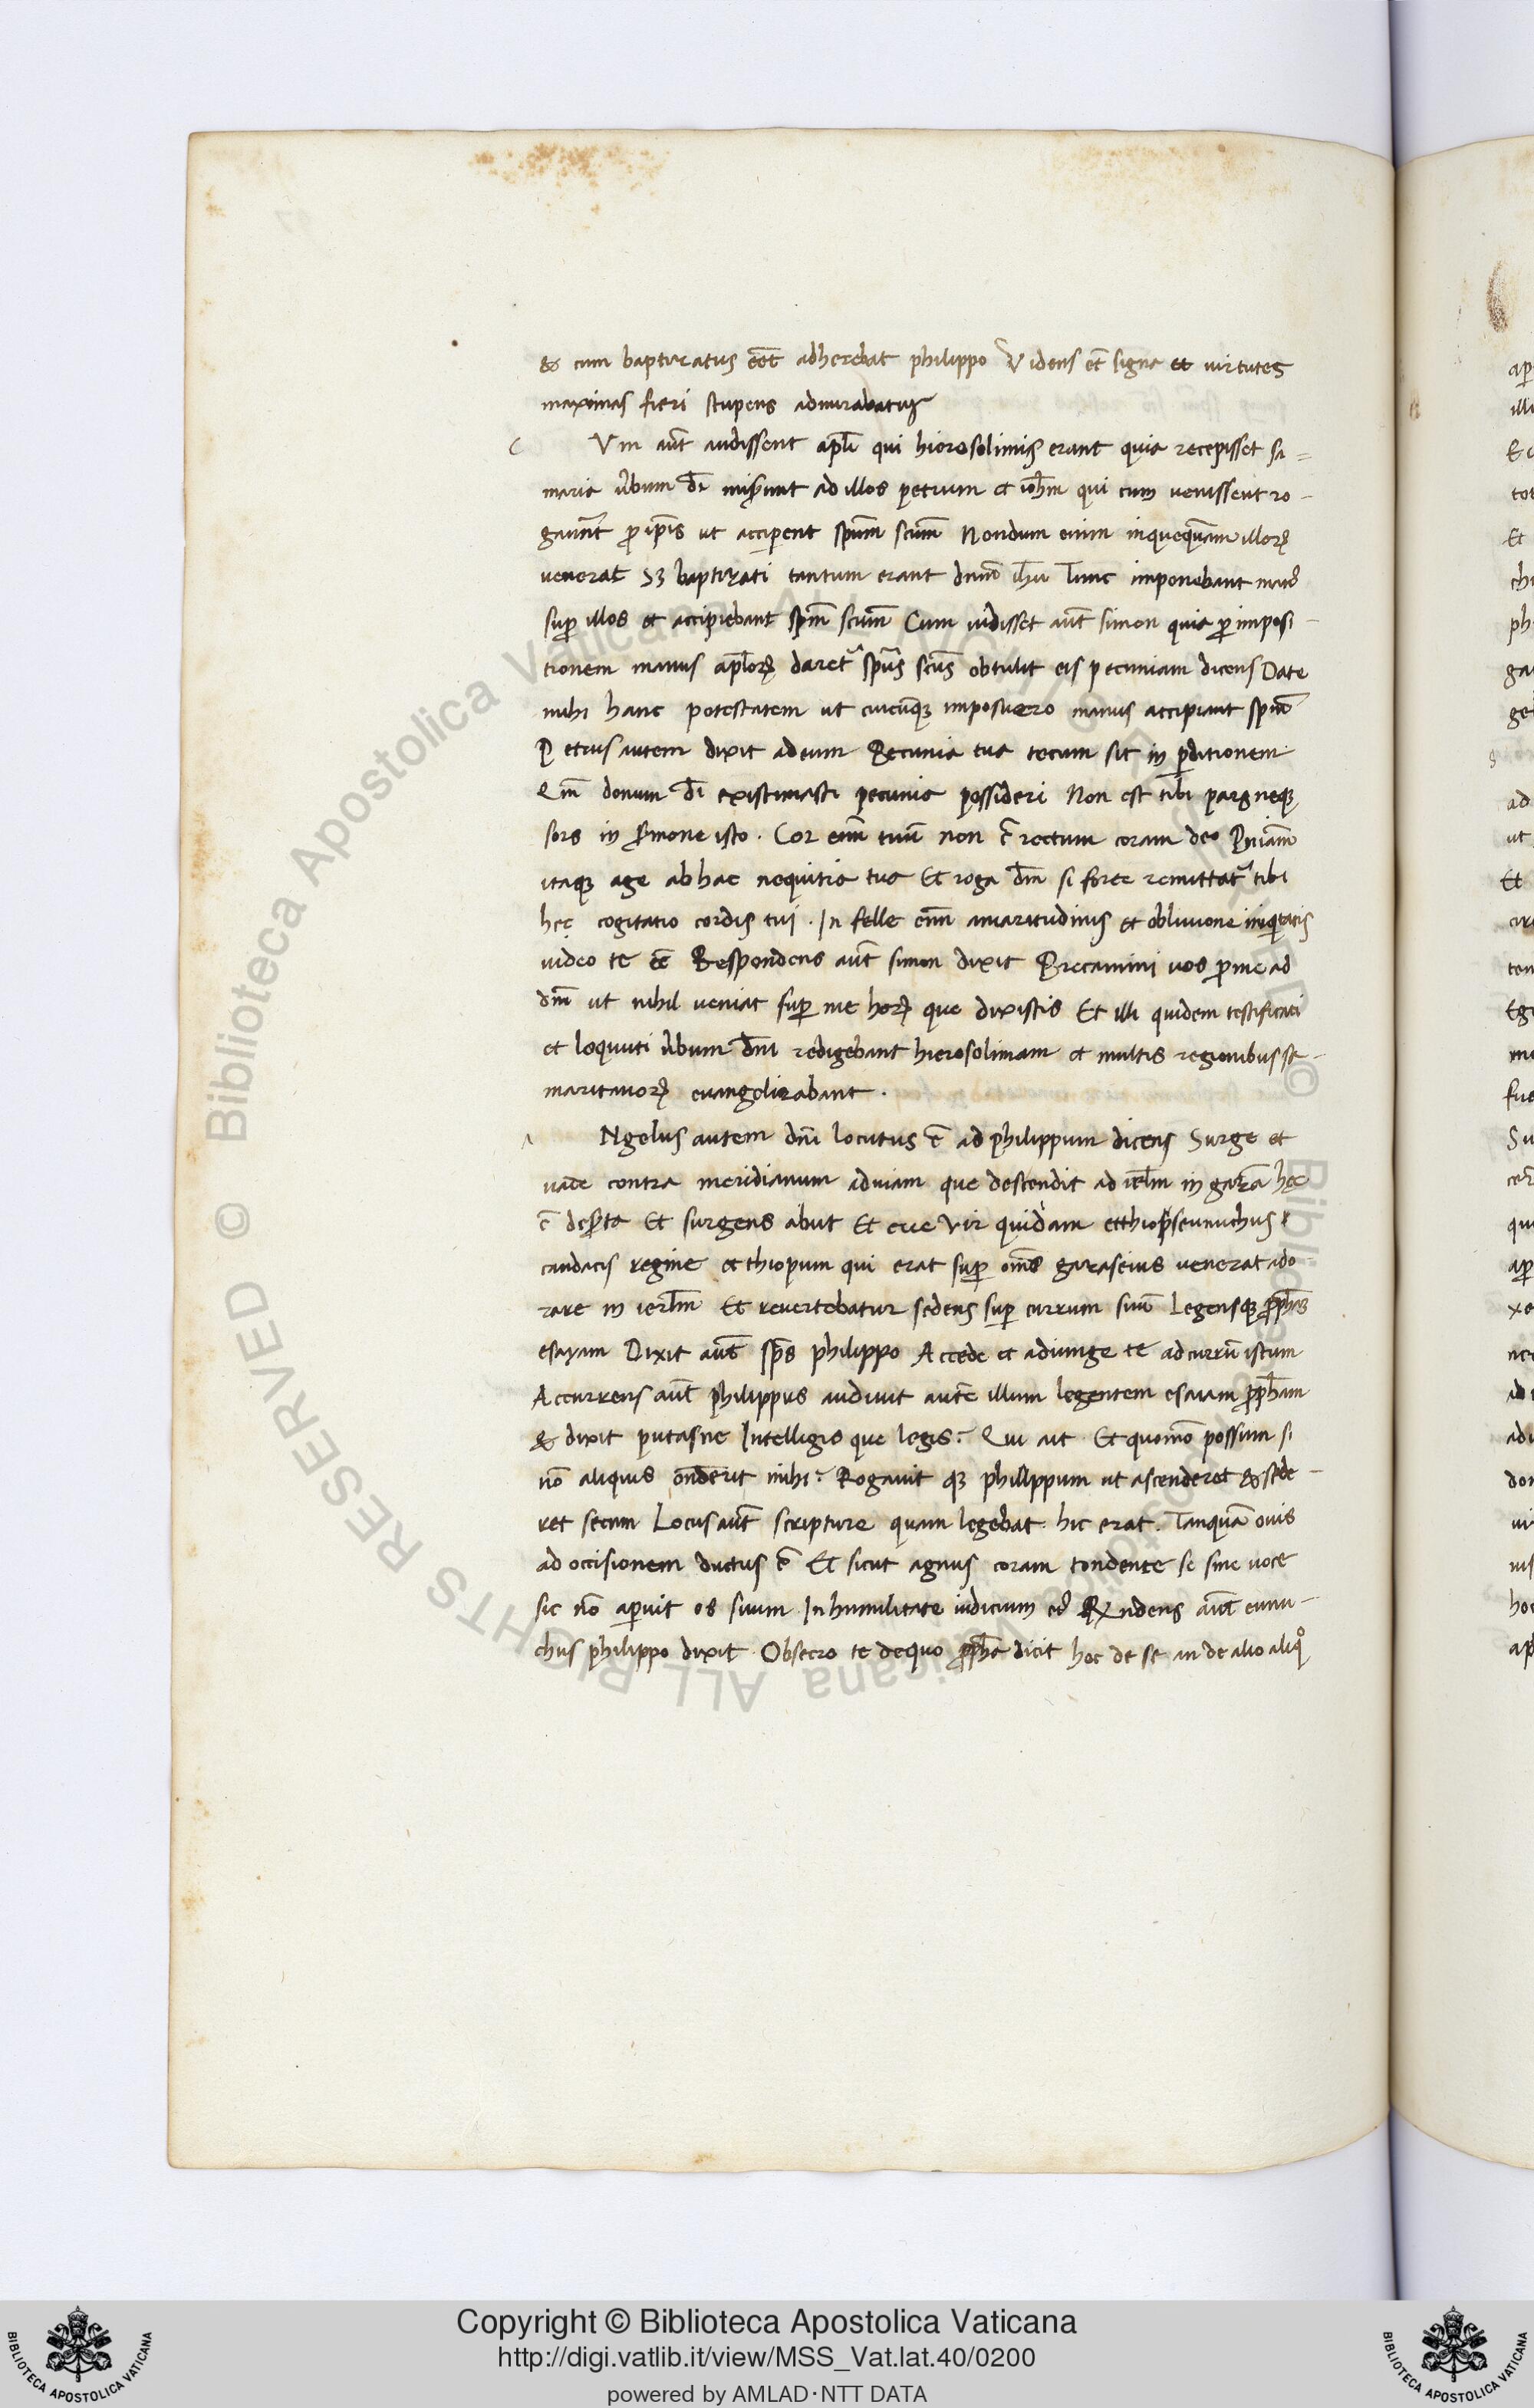 & cum baptizatus eēt adherebat philippo Videns et̄ signa et uirtutes
maximas fieri stupens admirabatur
c Vm aūt audissent apl̄i qui hierosolimis erant quia recepisset sa=
maria ůbum dī misert ad illos petrum et ioh̄m qui cum uenissent ro-
gaunt̄ ꝓ ip̄is ut acciperent sp̄um sc̄um Nondum enim inquequam̄ illoꝝ
venerat Sꝫ baptizati tantum erant dnm̄ ih̄u Tunc imponebant man9
suꝑ illos et accipiebant sp̄m sc̄um Cum uidisset aūt simon quia ꝑ imposi-
tionem manus apl̄oꝝ daret᷑ sp̄us sc̄us obtulit eis pecuniam dicens Date
mihi hanc potestatem ut cuicūqꝫ imposuero manus accipiant sp̄m
Petrus autem dixit ad eum Pecunia tua tecum sit in ꝑditionem
Qm̄ donum dī existimasti pecunia possideri Non est tibi pars neqꝫ
sors in s̄mone isto. Cor enī tuū non ē rectum coram deo Pn̄iam
itaqꝫ age ab hac nequitia tua Et roga dm̄ si forte remittat᷑ tibi
hęc cogitatio cordis tui. In felle enī amaritudinis et obliuione iniqtatis
uideo te eē Respondens aūt simon dixit Precamini uos ꝓ me ad
dm̄ ut nihil veniat suꝑ me hoꝝ que dixistis Et illi quidem testificati
et loquuti ůbum dn̄i redigebant hierosolimam et multis regionibus sa-
maritanoꝝ euangelizabant.
A Ngelus autem dn̄i locutus ē ad philippum dicens Surge et
uade contra meridianum ad uiam que descendit ad ierl̄m in gazā hęc
ē des̄ta Et surgens abiit Et ecce Vir quidam etthiops eunuchus
candacis regine etthiopum qui erat suꝑ om̄s gazas eius uenerat ado
rare in ierl̄m Et reuertebatur sedens suꝑ currum suū Legensqꝫ ꝓph̄am
esayam Dixit aūt sp̄s philippo Accede et adiunge te ad currū istum
Accurrens aūt philippus audiuit aut̄e illum legentem esaiam ꝓph̄am
& dixit putasne Intelligis que legis? Qui ait Et quomō possum si
nō aliquis onderit mihi? Rogauit qꝫ philippum ut ascenderet & sede-
ret secum Locus aūt scripture quam legebat hic erat. Tanquā ouis
ad occisionem ductus ē Et sicut agnus coram tondente se sine uoce
sic nō aperuit os suum In humilitate iudicium ei9 Rxndens aūt eunu-
chus philippo dixit Obsecro te de quo ꝓph̄a dicit hoc de se an de alio aliqͦ
Copyright © Biblioteca Apostolica Vaticana
http://digi.vatlib.it/view/MSS_Vat.lat.40/0200
powered by AMLAD·NTT DATA